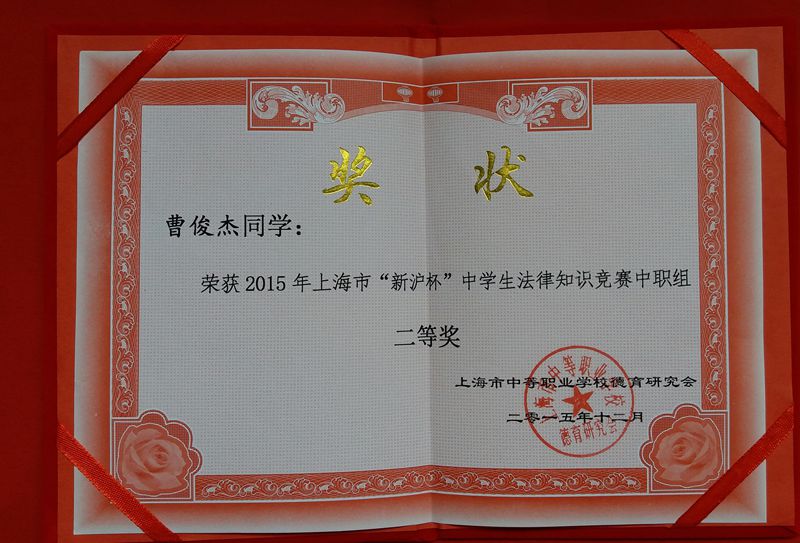 奖状
曹俊杰同学：
荣获2015年上海市“新沪杯”中学生法律知识竞赛中职组
二等奖
上海市中等职业学校德育研究会
二零一五年十二月
上海市中等职业学校
德育研究会